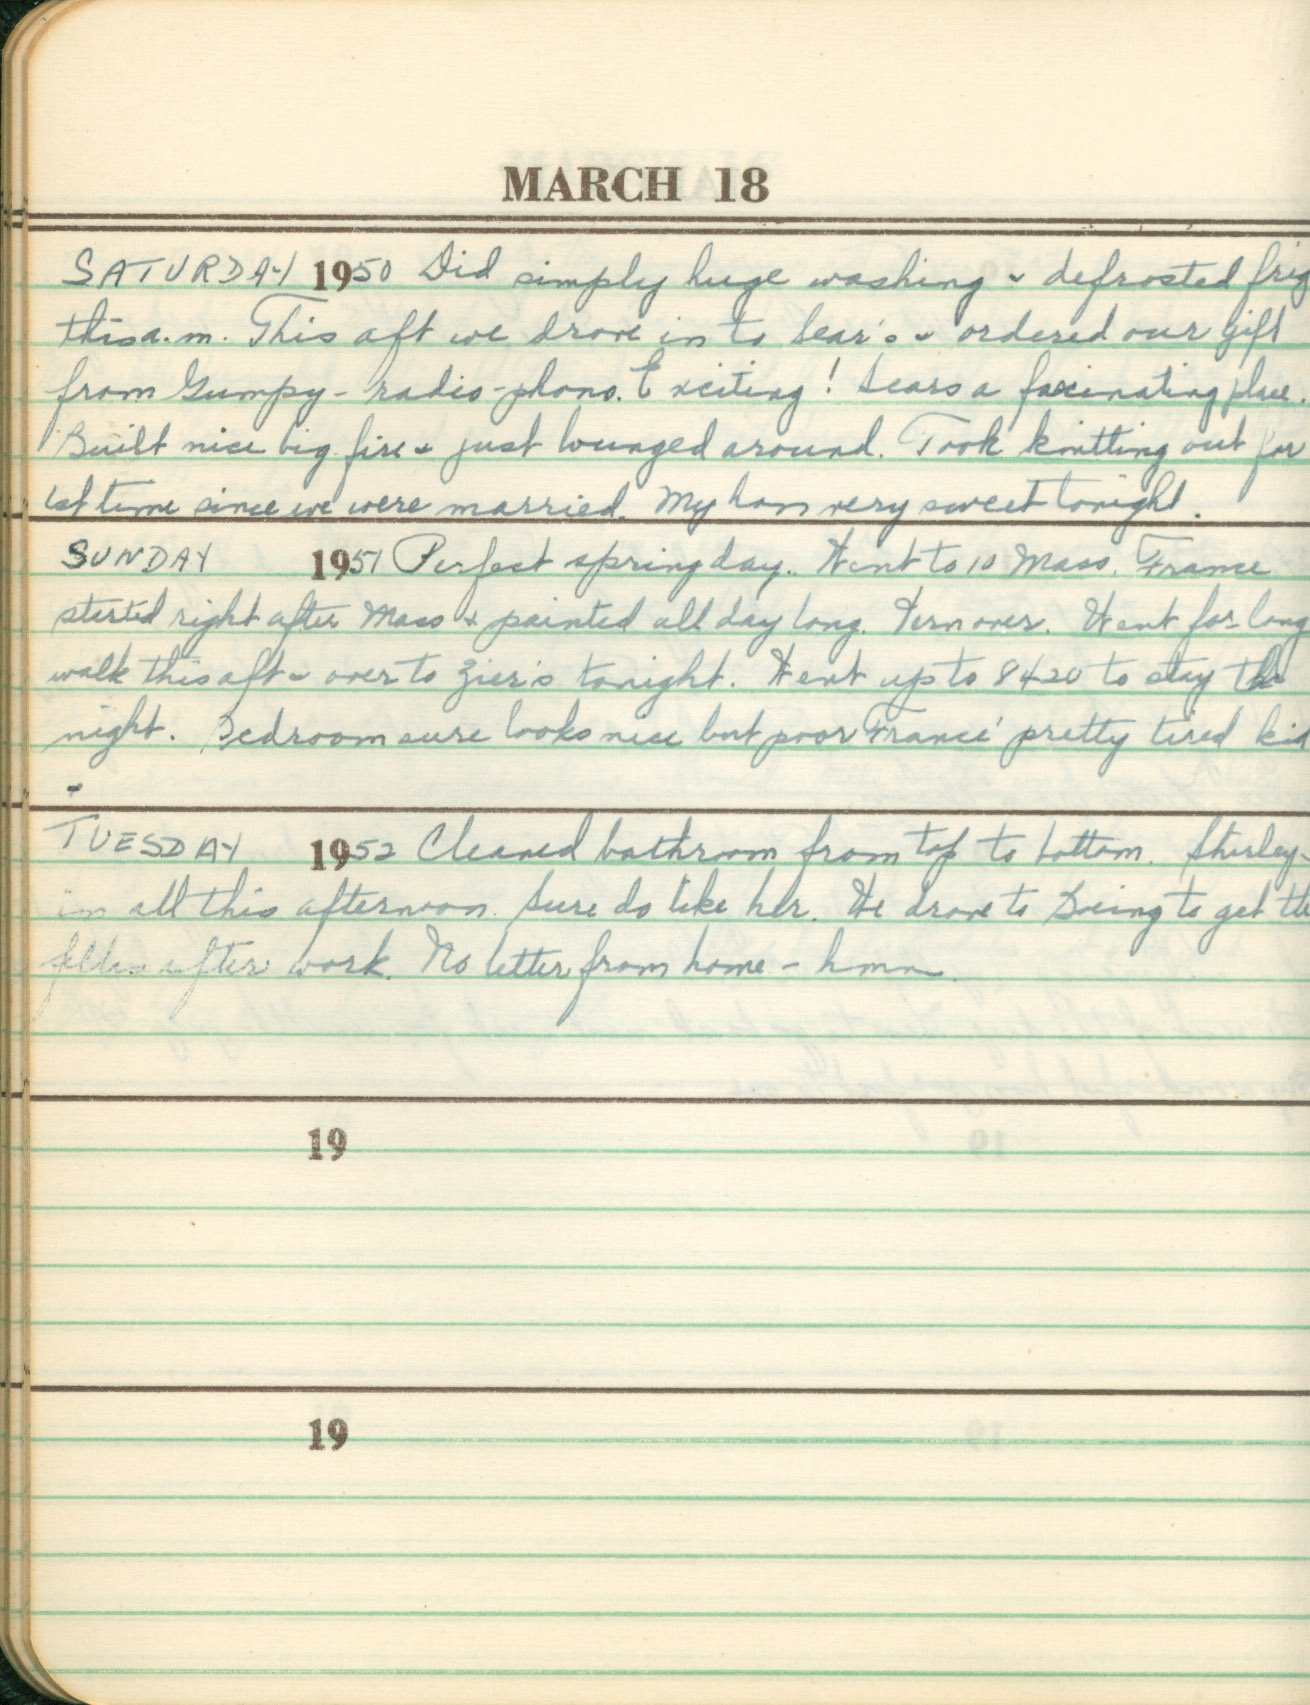 MARCH 18
SATURDAY 1950 Did simply huge washing & defrosted frig
this a.m. This aft we drove in to Sear's & ordered our gift
from Gumpy - radio-phono. Exciting! Sears a fascinating place.
Built nice big fire & just lounged around. Took knitting out for
1st time since we were married. My hon very sweet tonight.
SUNDAY 1951 Perfect spring day. Went to 10 Mass. France
started right after Mass & painted all day long. Vern over. Went for long
walk this aft & over to Zier's tonight. Went up to 8420 to stay the
night. Bedroom sure looks nice but poor France' pretty tired kid
TUESDAY 1952 Cleaned bathroom from top to bottom. Shirley
in all this afternoon. Sure do like her. We drove to Boeing to get the
fellas after work. No letter from home - hmm
19
19